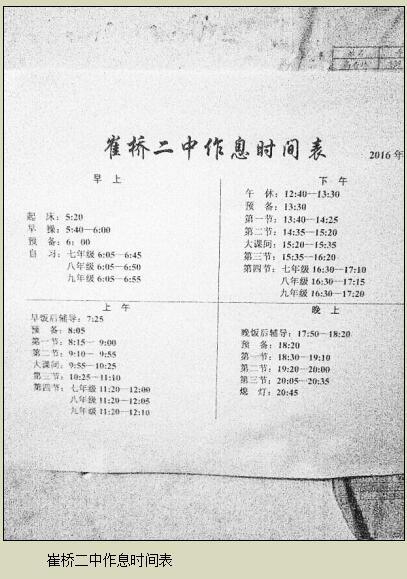 崔桥二中作息时间表
2016年
早 上
起 床：5:20
早 操：5:40—6:00
预 备：6：00
自 习：七年级 6:05—6:45
八年级 6:05—6:50
九年级 6:05—6:55
下 午
午 休：12:40—13:30
预 备：13:30
第一节：13:40—14:25
第二节：14:35—15:20
大课间：15:20—15:35
第三节：15:35—16:20
第四节：七年级 16:30—17:10
八年级 16:30—17:15
九年级 16:30—17:20
上 午
早饭后辅导：7:25
预 备：8:05
第一节：8:15— 9:00
第二节：9:10— 9:55
大课间：9:55—10:25
第三节：10:25—11:10
第四节：七年级 11:20—12:00
八年级 11:20—12:05
九年级 11:20—12:10
晚 上
晚饭后辅导：17:50—18:20
预 备：18:20
第一节：18:30—19:10
第二节：19:20—20:00
第三节：20:05—20:35
熄 灯：20:45
崔桥二中作息时间表